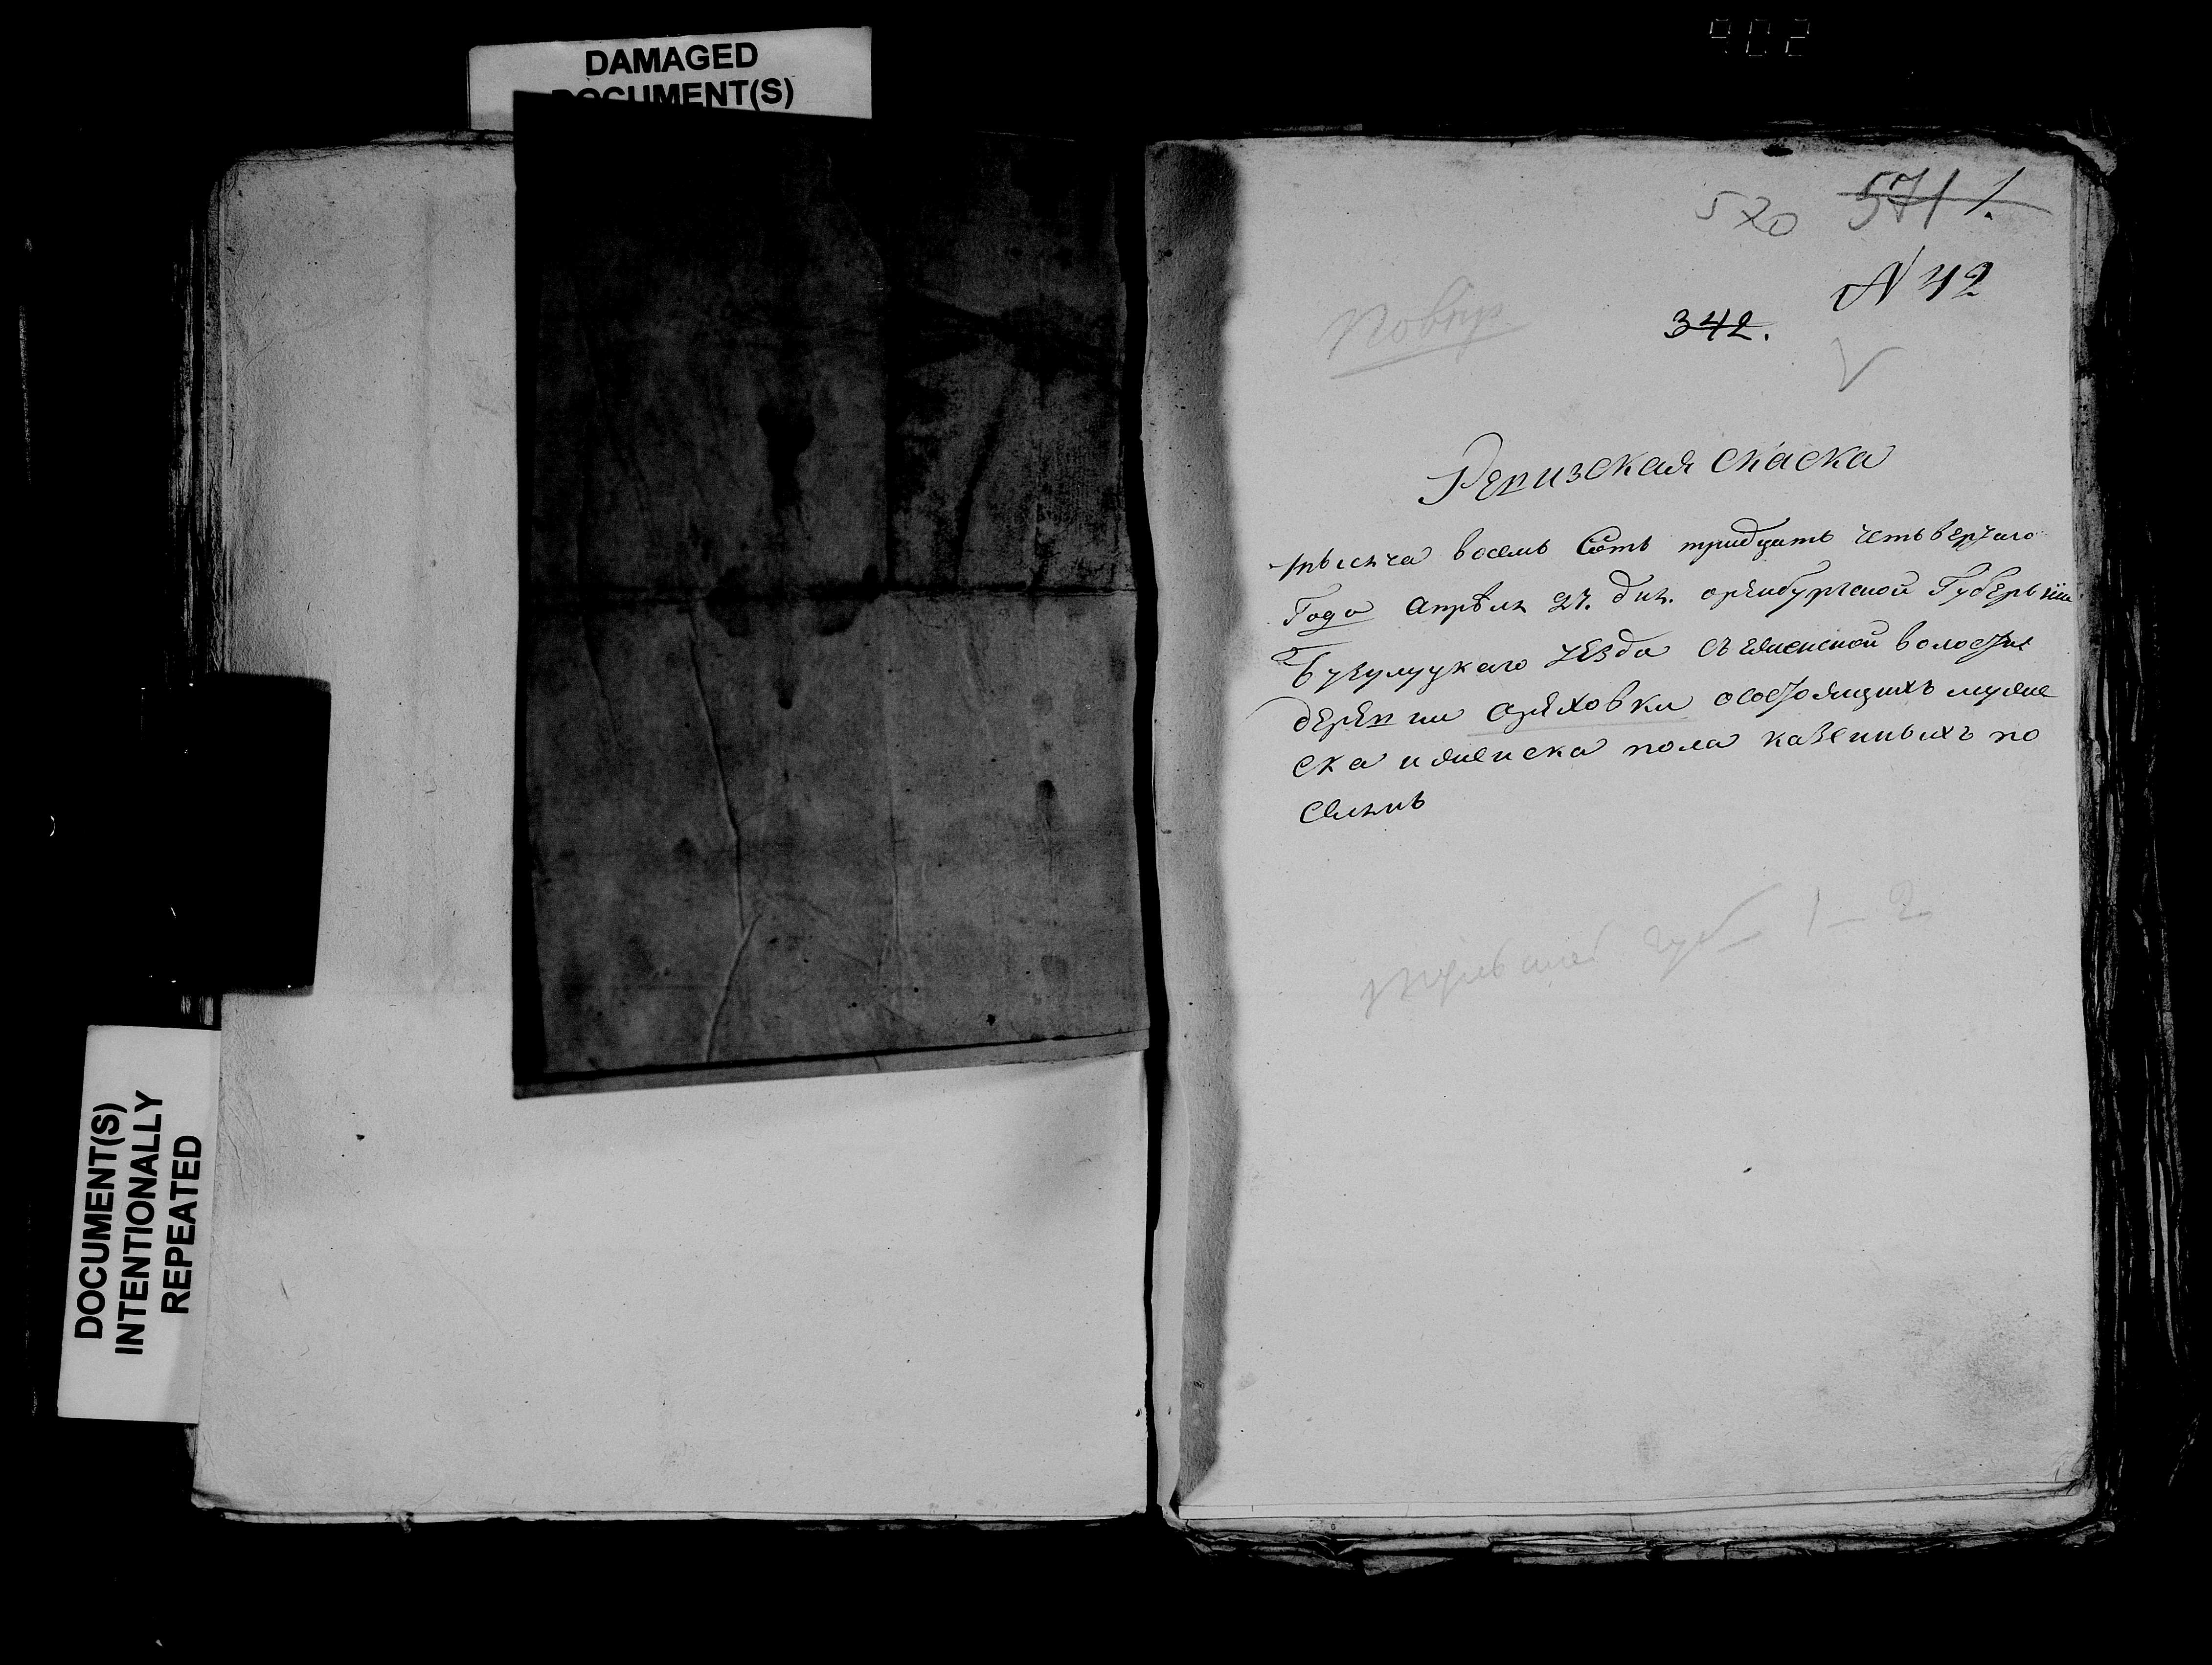 DAMAGED
DOCUMENT(S)
DOCUMENT(S)
INTENTIONALLY
REPEATED
902
520 571 1.
N 42
342.
Ревизская скаска
тысяча восемь сотъ тридцать четьвертаго
Года апрѣля 27. дня. оренбургской Губерьнїи
Бузулуцкаго уезда съезженской волости
деревни ореховки осостоящихъ мужие
ска ижениска пола казенныхъ по
селянъ
1 – 2